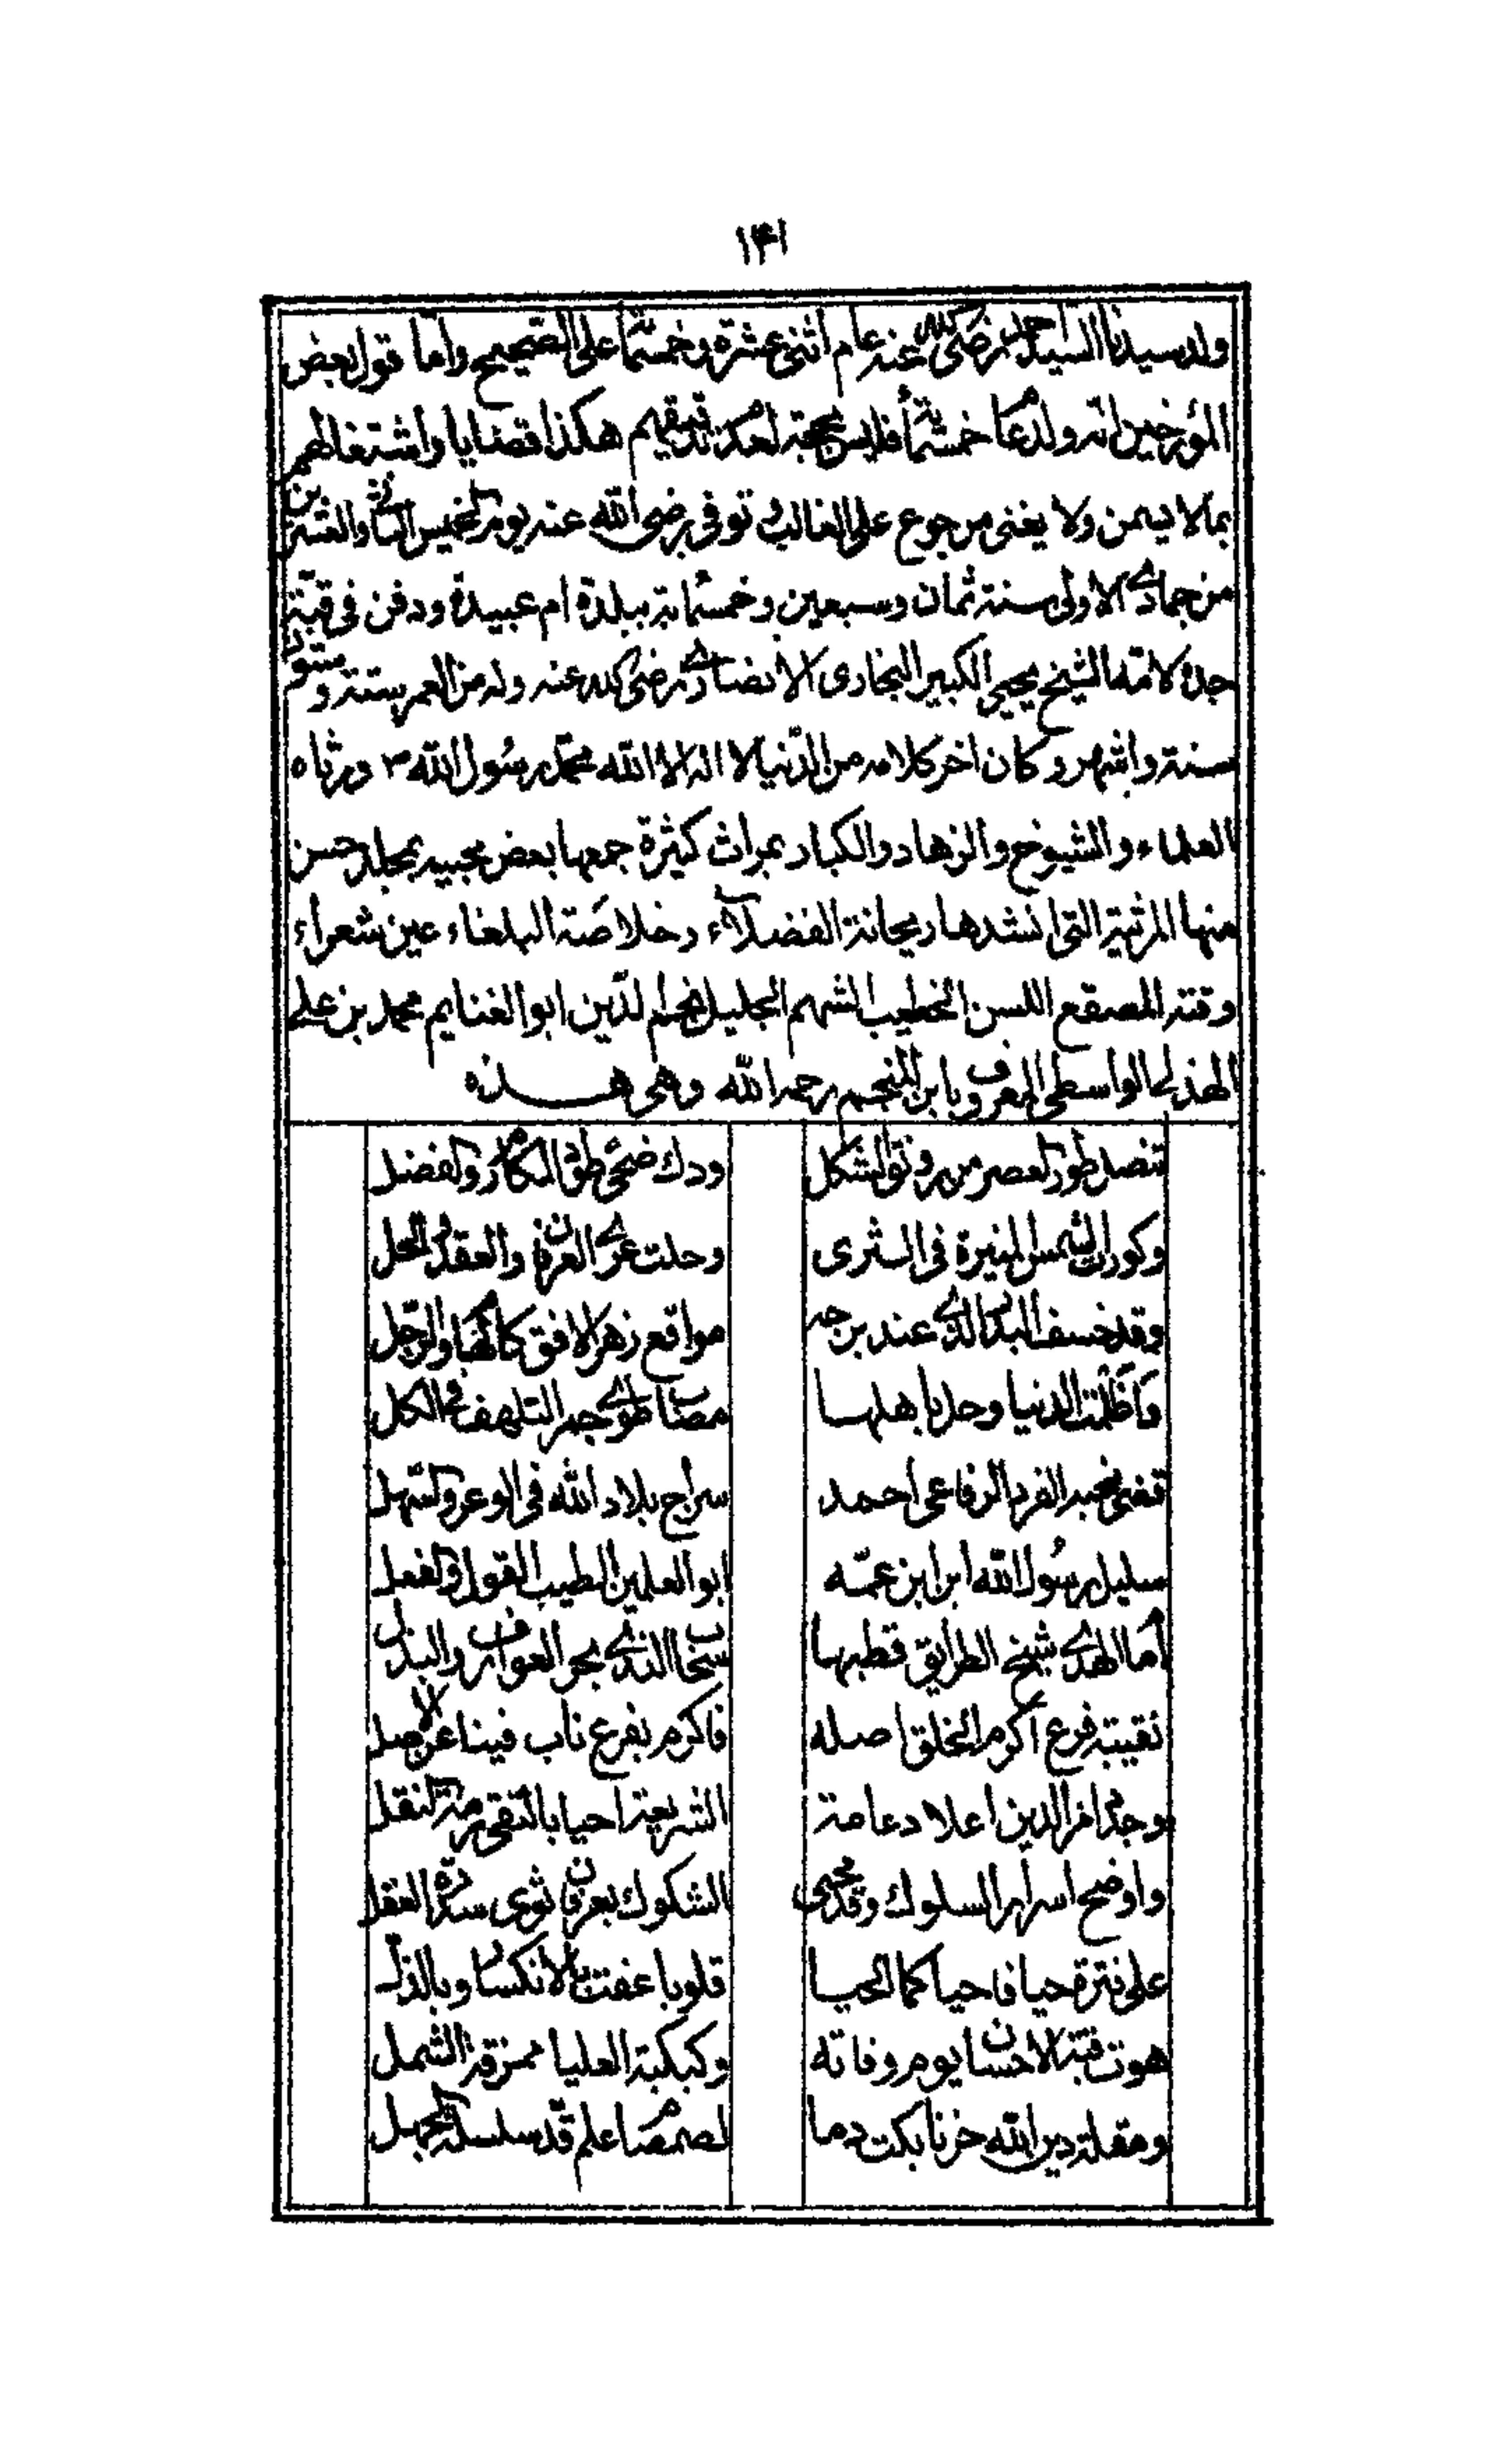 ١٤١
ولد سيدنا السيد احمد رضى الله عنه عام اثنى عشرة وخمسمائة على الصحيح واما قول بعض
المؤرخين انه ولد عام خمسمائة فليس بحجة لعدم تدقيقهم هكذا قضايا واشتغالهم
بما لا يسمن ولا يغنى من جوع على الغالب توفى رضى الله عنه يوم الخميس الثانى والعشرين
من جمادى الاولى سنة ثمان وسبعين وخمسمائة ببلدة ام عبيدة ودفن فى قبة
جده لامه الشيخ يحيى الكبير البخارى الانصارى رضى الله عنه وله من العمر ستة وستون
سنة واشهر وكان اخر كلامه من الدنيا لا اله الا الله محمد رسول الله ص ورثاه
العلماء والشيوخ والزهاد والكبار بمراث كثيرة جمعها بعض محبيه بمجلد حسن
منها المرثية التى انشدها ريحانة الفضلاء وخلاصة البلغاء عين شعراء
وقته المصقع اللسن الخطيب الشهم الجليل نجم الدين ابو الغنايم محمد بن على
الهذلى الواسطى المعروف بابن المنجم رحمه الله وهى هذه
تنصل طور العصر من رونق الشكل
ودك ضحى طود المكارم والفضل
وكورت الشمس المنيرة فى الثرى
وحلت عرى العرفان والعقد الحل
وقد خسف البدر الذى عند برجه
مواقع زهر الافق كانها والرجل
واظلمت الدنيا وحل باهلها
مصاب طوى جمر التلهف فى الكل
قضى نحبه الفرد الرفاعى احمد
سراج بلاد الله فى الوعر والسهل
سليل رسول الله ابن ابن عمه
ابو العلمين الطيب القول والفعل
امام الهدى شيخ الطرايق قطبها
سحاب الندى بحر العوارف والبذل
نقيبة فرع اكرم الخلق اصله
فاكرم بفرع ناب فينا عن الاصل
وجدد امر الدين اعلا دعامة
الشريعة احيا بالتقى رمة النقل
واوضح اسرار السلوك وقد محى
الشكوك بعرفان ثوى سدرة العقل
على فترة حيا فاحيا كما الحيا
قلوبا عفت بالانكسار وبالذل
هوت قبة الاحسان يوم وفاته
وكبكبة العليا ممزقة الشمل
ومقلة دين الله حزنا بكت دما
لصمصام علم قد سلسلة الجهل